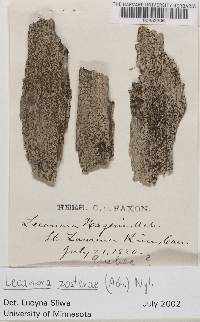 THE HARVARD UNIVERSITY HERBARIA
HERB. C. E. FAXON.
Lecanora Hageni Ach.
St. Lawrence River, Can.
July 21, 1880.
Quebec?
Lecanora zosterae (Ach.) Nyl.
Det. Lucyna Sliwa July 2002
University of Minnesota